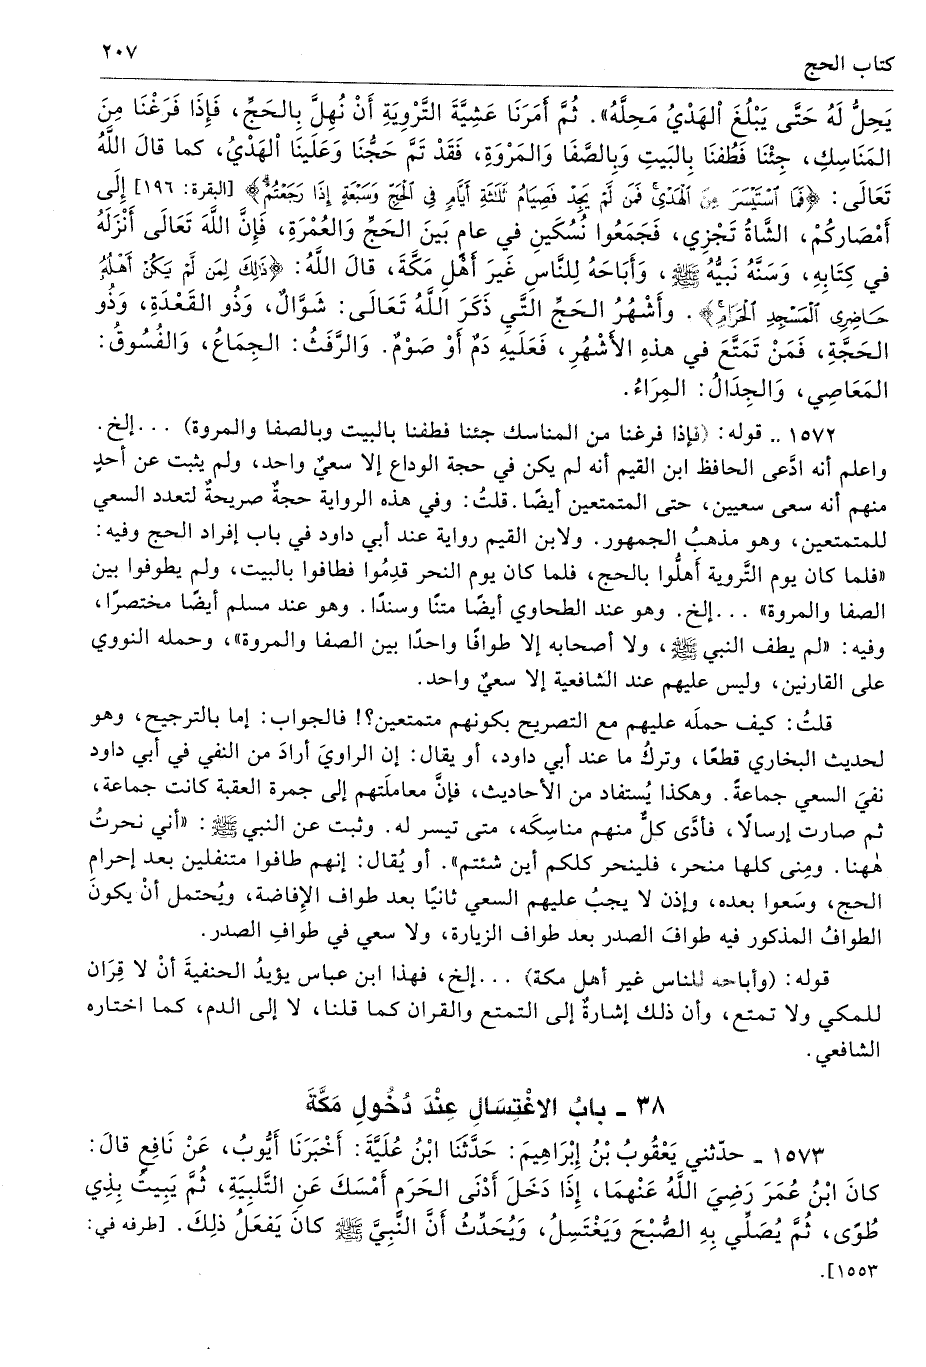 ٢٠٧
كتاب الحج
يَحِلُّ لَهُ حَتَّى يَبْلُغَ الْهَدْيُ مَحِلَّهُ». ثُمَّ أَمَرَنَا عَشِيَّةَ التَّرْوِيَةِ أَنْ نُهِلَّ بِالحَجِّ، فَإِذَا فَرَغْنَا مِنَ
المَنَاسِكِ، جِئْنَا فَطُفنَا بِالبَيتِ وَبِالصَّفَا وَالمَرْوَةِ، فَقَدْ تَمَّ حَجُّنَا وَعَلَينَا الْهَدْيُ، كما قالَ اللَّهُ
تَعَالَى: ﴿فَمَا ٱسْتَيْسَرَ مِنَ ٱلْهَدْيِۚ فَمَن لَّمْ يَجِدْ فَصِيَامُ ثَلَٰثَةِ أَيَّامٍ فِي ٱلْحَجِّ وَسَبْعَةٍ إِذَا رَجَعْتُمْۗ﴾ [البقرة: ١٩٦] إِلَى
أَمْصَارِكُمْ، الشَّاةُ تَجْزِي، فَجَمَعُوا نُسُكَينِ في عامٍ بَينَ الحَجِّ وَالعُمْرَةِ، فَإِنَّ اللَّهَ تَعَالَى أَنْزَلَهُ
في كِتَابِهِ، وَسَنَّهُ نَبِيُّهُ ﷺ، وَأَبَاحَهُ لِلنَّاسِ غَيرَ أَهْلِ مَكَّةَ، قالَ اللَّهُ: ﴿ذَٰلِكَ لِمَن لَّمْ يَكُنْ أَهْلُهُۥ
حَاضِرِى ٱلْمَسْجِدِ ٱلْحَرَامِۚ﴾. وأَشْهُرُ الحَجِّ التَّيِ ذَكَرَ اللَّهُ تَعَالَى: شَوَّالٌ، وَذُو القَعْدَةِ، وَذُو
الحَجَّةِ، فَمَنْ تَمَتَّعَ في هذهِ الأَشْهُرِ، فَعَلَيهِ دَمٌ أَوْ صَوْمٌ. وَالرَّفَثُ: الجِمَاعُ، وَالفُسُوقُ:
المَعَاصِي، وَالجِدَالُ: المِرَاءُ.
١٥٧٢ .. قوله: (فإذا فرغنا من المناسك جئنا فطفنا بالبيت وبالصفا والمروة) ...إلخ.
واعلم أنه ادَّعى الحافظ ابن القيم أنه لم يكن في حجة الوداع إلا سعيٌ واحد، ولم يثبت عن أحدٍ
منهم أنه سعى سعيين، حتى المتمتعين أيضًا. قلتُ: وفي هذه الرواية حجةٌ صريحةٌ لتعدد السعي
للمتمتعين، وهو مذهبُ الجمهور. ولابن القيم رواية عند أبي داود في باب إفراد الحج وفيه:
«فلما كان يوم التَّروية أهلُّوا بالحج، فلما كان يوم النحر قدِمُوا فطافوا بالبيت، ولم يطوفوا بين
الصفا والمروة» ...إلخ. وهو عند الطحاوي أيضًا متنًا وسندًا. وهو عند مسلم أيضًا مختصرًا،
وفيه: «لم يطف النبي ﷺ، ولا أصحابه إلا طوافًا واحدًا بين الصفا والمروة»، وحمله النووي
على القارنين، وليس عليهم عند الشافعية إلا سعيٌ واحد.
قلتُ: كيف حملَه عليهم مع التصريح بكونهم متمتعين؟! فالجواب: إما بالترجيح، وهو
لحديث البخاري قطعًا، وتركُ ما عند أبي داود، أو يقال: إن الراويَ أرادَ من النفي في أبي داود
نفيَ السعي جماعةً. وهكذا يُستفاد من الأحاديث، فإنَّ معاملَتهم إلى جمرة العقبة كانت جماعة،
ثم صارت إرسالًا، فأدَّى كلٌّ منهم مناسِكَه، متى تيسر له. وثبت عن النبي ﷺ: «أني نحرتُ
هٰهنا. ومِنى كلها منحر، فلينحر كلكم أين شئتم». أو يُقال: إنهم طافوا متنفلين بعد إحرام
الحج، وسَعوا بعده، وإذن لا يجبُ عليهم السعي ثانيًا بعد طواف الإفاضة، ويُحتمل أنْ يكونَ
الطوافُ المذكور فيه طوافَ الصدر بعد طواف الزيارة، ولا سعي في طوافِ الصدر.
قوله: (وأباحه للناس غير أهل مكة) ...إلخ، فهذا ابن عباس يؤيدُ الحنفيةَ أنْ لا قِرَان
للمكي ولا تمتع، وأن ذلك إشارةٌ إلى التمتع والقران كما قلنا، لا إلى الدم، كما اختاره
الشافعي.
٣٨ ـ بابُ الاغْتِسَالِ عِنْدَ دُخُولِ مَكَّةَ
١٥٧٣ ـ حدّثني يَعْقُوبُ بْنُ إِبْرَاهِيمَ: حَدَّثَنَا ابْنُ عُلَيَّةَ: أَخْبَرَنَا أَيُّوبُ، عَنْ نَافِعٍ قالَ:
كانَ ابْنُ عُمَرَ رَضِيَ اللَّهُ عَنْهُمَا، إِذَا دَخَلَ أَدْنَى الحَرَمِ أَمْسَكَ عَنِ التَّلبِيَةِ، ثُمَّ يَبِيتُ بِذِي
طُوًى، ثُمَّ يُصَلِّي بِهِ الصُّبْحَ وَيَغْتَسِلُ، وَيُحَدِّثُ أَنَّ النَّبِيَّ ﷺ كانَ يَفعَلُ ذلِكَ. [طرفه في:
١٥٥٣].